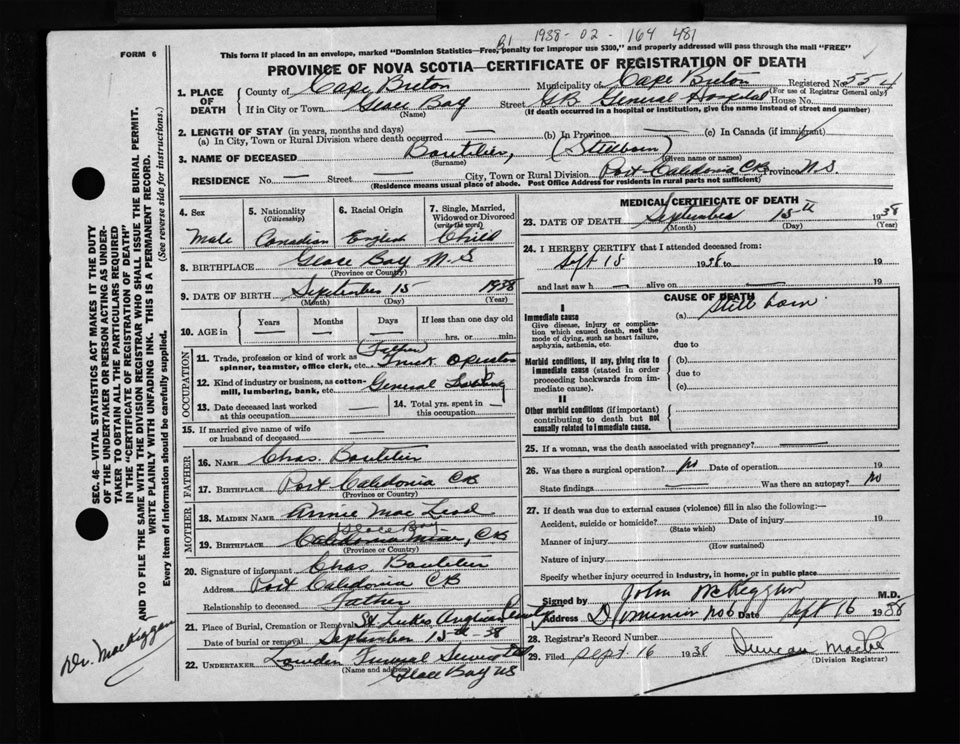 B1 1938 - 02 - 164 481
FORM 6
This form if placed in an envelope, marked "Dominion Statistics—Free, penalty for improper use $300," and properly addressed will pass through the mail "FREE"
PROVINCE OF NOVA SCOTIA—CERTIFICATE OF REGISTRATION OF DEATH
1. PLACE OF DEATH
County of Cape Breton Municipality of Cape Breton Registered No 554
(For use of Registrar General only)
If in City or Town Glace Bay Street G.B. General Hospital House No.
(Name) (If death occurred in a hospital or institution, give the name instead of street and number)
2. LENGTH OF STAY (in years, months and days)
(a) In City, Town or Rural Division where death occurred — (b) In Province — (c) In Canada (if immigrant)
3. NAME OF DECEASED Boutilier, (Stillborn)
(Surname) (Given name or names)
RESIDENCE No. — Street — City, Town or Rural Division Port Caledonia CB Province N.S.
(Residence means usual place of abode. Post Office Address for residents in rural parts not sufficient)
4. Sex
Male
5. Nationality (Citizenship)
Canadian
6. Racial Origin
English
7. Single, Married, Widowed or Divorced (write the word)
Child
8. BIRTHPLACE Glace Bay N.S
(Province or Country)
9. DATE OF BIRTH September 15 1938
(Month) (Day) (Year)
10. AGE in Years Months Days If less than one day old
hrs. or min.
OCCUPATION
11. Trade, profession or kind of work as spinner, teamster, office clerk, etc. (Father) Truck Operator
12. Kind of industry or business, as cotton-mill, lumbering, bank, etc. General Trucking
13. Date deceased last worked at this occupation —
14. Total yrs. spent in this occupation —
15. If married give name of wife or husband of deceased —
FATHER
16. NAME Chas. Boutilier
17. BIRTHPLACE Port Caledonia CB
(Province or Country)
MOTHER
18. MAIDEN NAME Annie Mac Leod
Glace Bay
19. BIRTHPLACE Caledonia Mines, CB
(Province or Country)
20. Signature of informant Chas Boutilier
Address Port Caledonia CB
Relationship to deceased Father
21. Place of Burial, Cremation or Removal St Lukes Anglican
Date of burial or removal September 15th 38
22. UNDERTAKER Funeral Service Ltd
(Name and address) Glace Bay NS
MEDICAL CERTIFICATE OF DEATH
23. DATE OF DEATH September 15th 1938
(Month) (Day) (Year)
24. I HEREBY CERTIFY that I attended deceased from:
Sept 15 1938 to 19
and last saw h — alive on — 19
CAUSE OF DEATH
I
Immediate cause
Give disease, injury or complication which caused death, not the mode of dying, such as heart failure, asphyxia, asthenia, etc.
(a) Still born
due to
Morbid conditions, if any, giving rise to immediate cause (stated in order proceeding backwards from immediate cause).
(b)
due to
(c)
II
Other morbid conditions (if important) contributing to death but not causally related to immediate cause.
25. If a woman, was the death associated with pregnancy? —
26. Was there a surgical operation? no Date of operation 19
State findings — Was there an autopsy? no
27. If death was due to external causes (violence) fill in also the following:—
Accident, suicide or homicide? Date of injury 19
(State which)
Manner of injury
(How sustained)
Nature of injury
Specify whether injury occurred in industry, in home, or in public place
Signed by John McKiggan M.D.
Address Dominion No 6 Date Sept 16 1938
28. Registrar's Record Number
29. Filed Sept. 16 1938 Duncan
(Division Registrar)
SEC. 46—VITAL STATISTICS ACT MAKES IT THE DUTY
OF THE UNDERTAKER OR PERSON ACTING AS UNDER-
TAKER TO OBTAIN ALL THE PARTICULARS REQUIRED
IN THE "CERTIFICATE OF REGISTRATION OF DEATH"
AND TO FILE THE SAME WITH THE DIVISION REGISTRAR WHO SHALL ISSUE THE BURIAL PERMIT.
WRITE PLAINLY WITH UNFADING INK. THIS IS A PERMANENT RECORD.
Every item of information should be carefully supplied. (See reverse side for instructions.)
Dr. MacKiggan